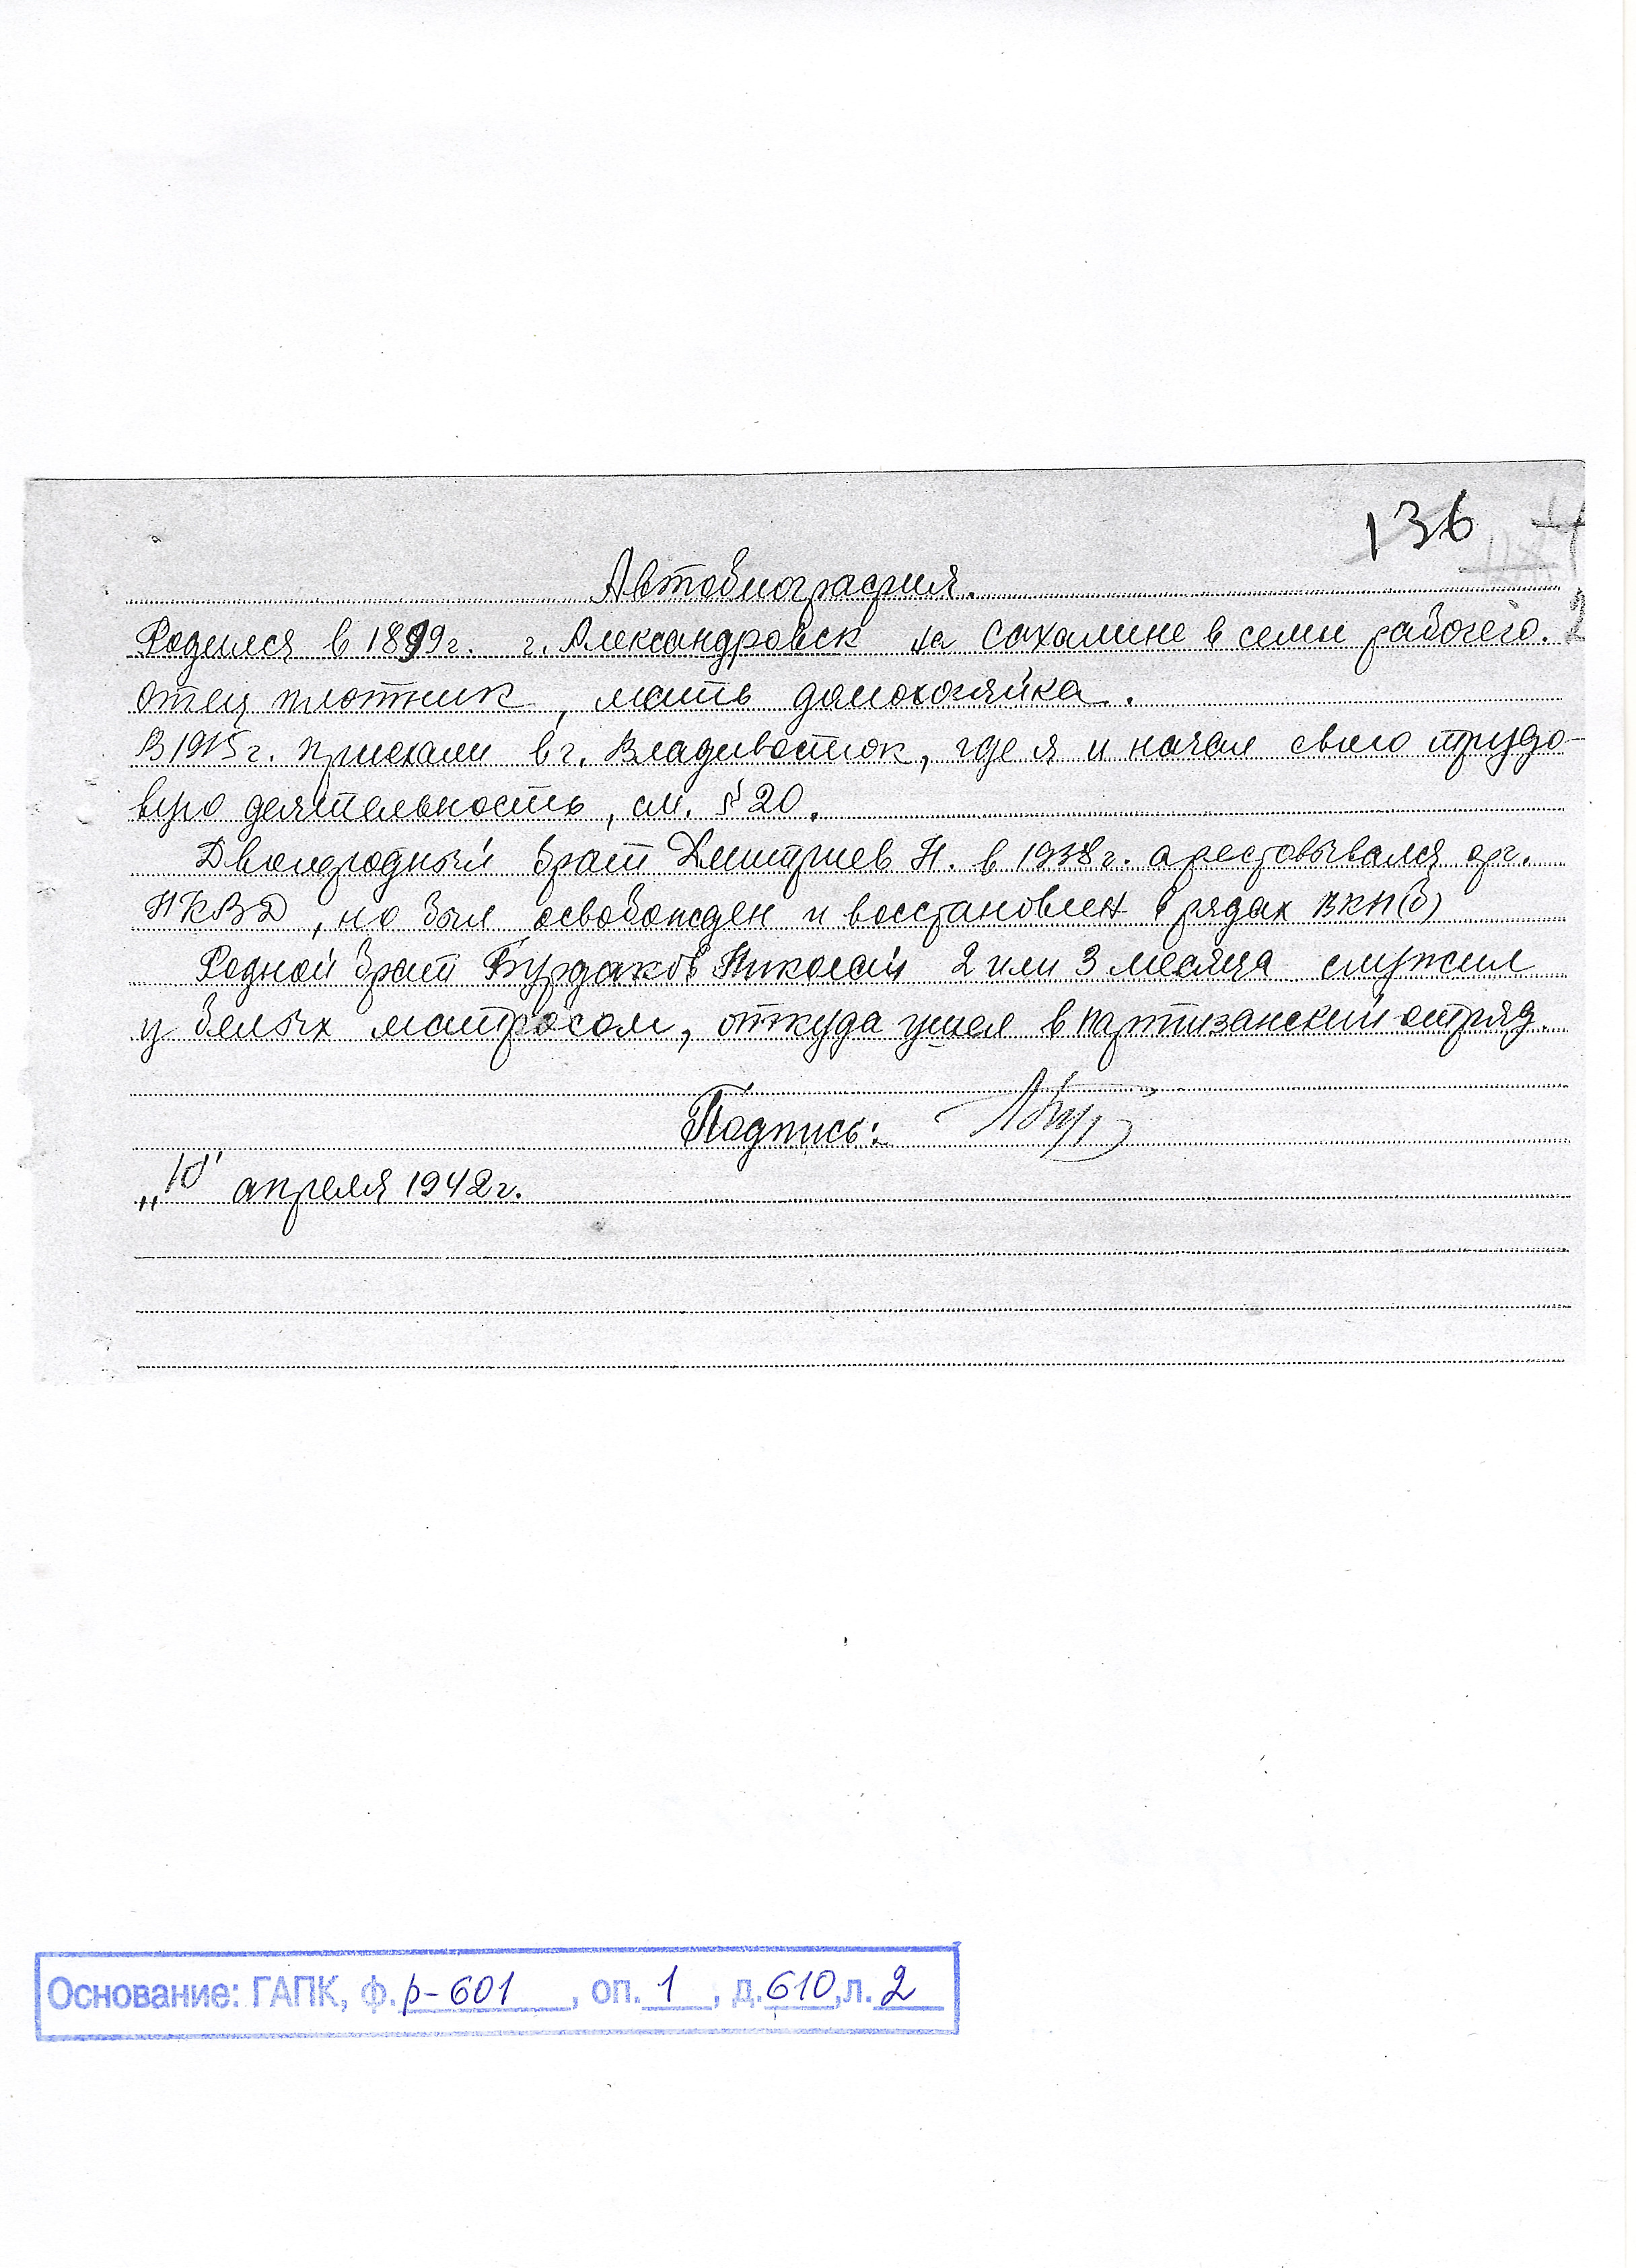 136
Автобиография.
Родился в 1899г. г. Александровск на Сахалине в семье рабочего. 2
Отец плотник, мать домохозяйка.
В 1915г. приехали в г. Владивосток, где я и начал свою трудо-
вую деятельность, см. § 20.
Двоюродный брат Дмитриев Н. в 1938г. арестовывался орг.
НКВД, но был освобожден и восстановлен в рядах ВКП(б)
Родной брат Бурдаков Николай 2 или 3 месяца служил
у белых матросом, откуда ушел в партизанский отряд.
Подпись:
„10" апреля 1942г.
Основание: ГАПК, ф. р-601, оп. 1, д. 610, л. 2